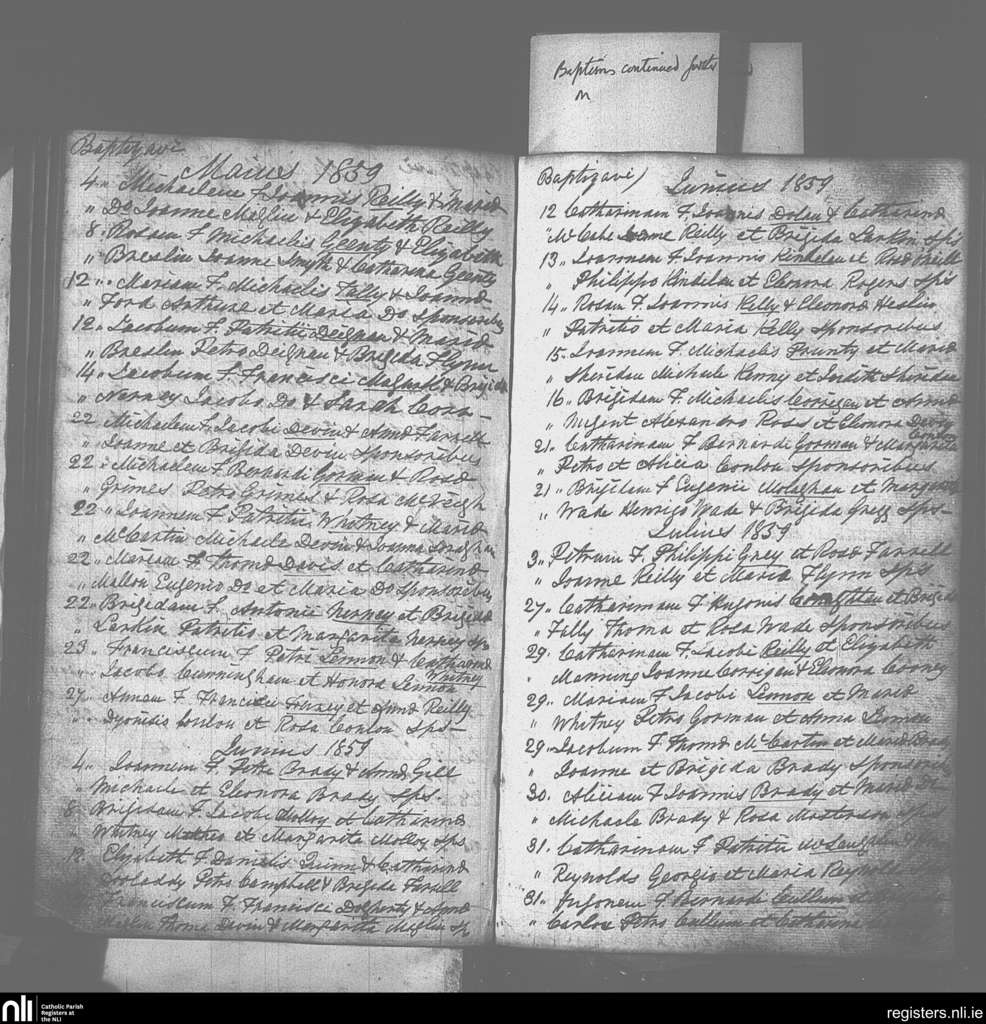 Baptisms continued
Baptizavi
Maius 1859
4 " Michaelem F. Joannis Reilly & Mariæ
" Do Joanne Maglin & Elizabeth Reilly
8 . Rosam F Michaelis Geenty & Elizabeth
" Breslin Joanne Smyth & Catharina Geenty
12 " Mariam F. Michaelis Tally & Joannæ
" Ford Arthuro et Maria Do Sponsoribus
12 " Jacobum F. Patritii Deignan & Mariæ
" Breslin Petro Deignan & Brigida Flynn
14 " Jacobum F. Francisci & Brigidæ
" Nerney Jacobo Do & Sarah
22 Michaelem F. Jacobi Devin & Annæ Farrell
" Joanne et Brigida Devin Sponsoribus
22 " Michaelem F Bernardi Gorman & Rosæ
" Grimes Petro Grimes & Rosa McVeigh
22 " Joannem F Patritii Whitney & Mariæ
" McCartin Michaele Devin & Joanna
22 " Mariam F Thomæ Davis et Catharinæ
" Mallon Eugenio Do et Maria Do Sponsoribus
22 " Brigidam F. Antonii Nerney et Brigidæ
" Larkin Patritio et Margarita Nerney Sps
23 " Franciscum F Petri Lennon & Catharinæ
Whitney
" Jacobo Cunningham et Honora Lennon
27 " Annam F Francisci et Annæ Reilly
" Dyonisis Conlon et Rosa Conlon Sps
Junius 1859
4 " Joannem F. Petri Brady & Annæ Gill
" Michaele et Eleonora Brady Sps.
8 Brigidam F. Jacobi Molloy et Catharinæ
" Whitney et Margarita Molloy Sps
12 . Elizabeth F Danielis Quinn & Catharinæ
Petro Campbell & Brigida Farell
Franciscum F Francisci Dogherty & Annæ
Thoma Devin & Margarita Maglin Sp
Baptizavi
Junius 1859
12 Catharinam F. Joannis Dolan & Catharinæ
" McCabe Reilly et Brigida Larkin Sps
13 " Joannem F Joannis Kindelan et Rosæ
" Philippo Kindelan et Elenora Rogers Sps
14 " Rosam F Joannis Kelly & Eleonoræ Heslin
" Patritio et Maria Kelly Sponsoribus
15 . Joannem F. Michaelis Prunty et Mariæ
" Sheridan Michaele Kenny et Judith Sheridan
16 " Brigidam F Michaelis Corrigan et Annæ
" Nugent Alexandro Ross et Elenora
21 " Catharinam F Bernardi Gorman & Margaritæ
Conlon
" Petro et Alicia Conlon Sponsoribus
21 " Brigidam F Eugenii Molaghan et
" Wade Henrico Wade & Brigida Gregg Sps
Julius 1859
3 " Petrum F. Philippi Grey et Rosæ Farrell
" Joanne Reilly et Maria Flynn Sps
27 " Catharinam F Hugonis et Brigidæ
" Tilly Thoma et Rosa Wade Sponsoribus
29 " Catharinam F. Jacobi Reilly et Elizabeth
" Manning Joanne Corrigan & Elenora Cooney
29 " Mariam F Jacobi Lennon et Mariæ
" Whitney Petro Gorman et Anna Lennon
29 " Jacobum F Thomæ McCartin et Mariæ Brady
" Joanne et Brigida Brady Sponsoribus
30 . Aliciam F Joannis Brady et Mariæ Do
" Michaele Brady & Rosa Masterson Sps
31 . Catharinam F Patritii
" Reynolds Georgio et Maria Reynolds
31 " Hugonem F Bernardi Cullum et
" Carlos Petro Cullum et Catharina
nli
Catholic Parish
Registers at
the NLI
registers.nli.ie